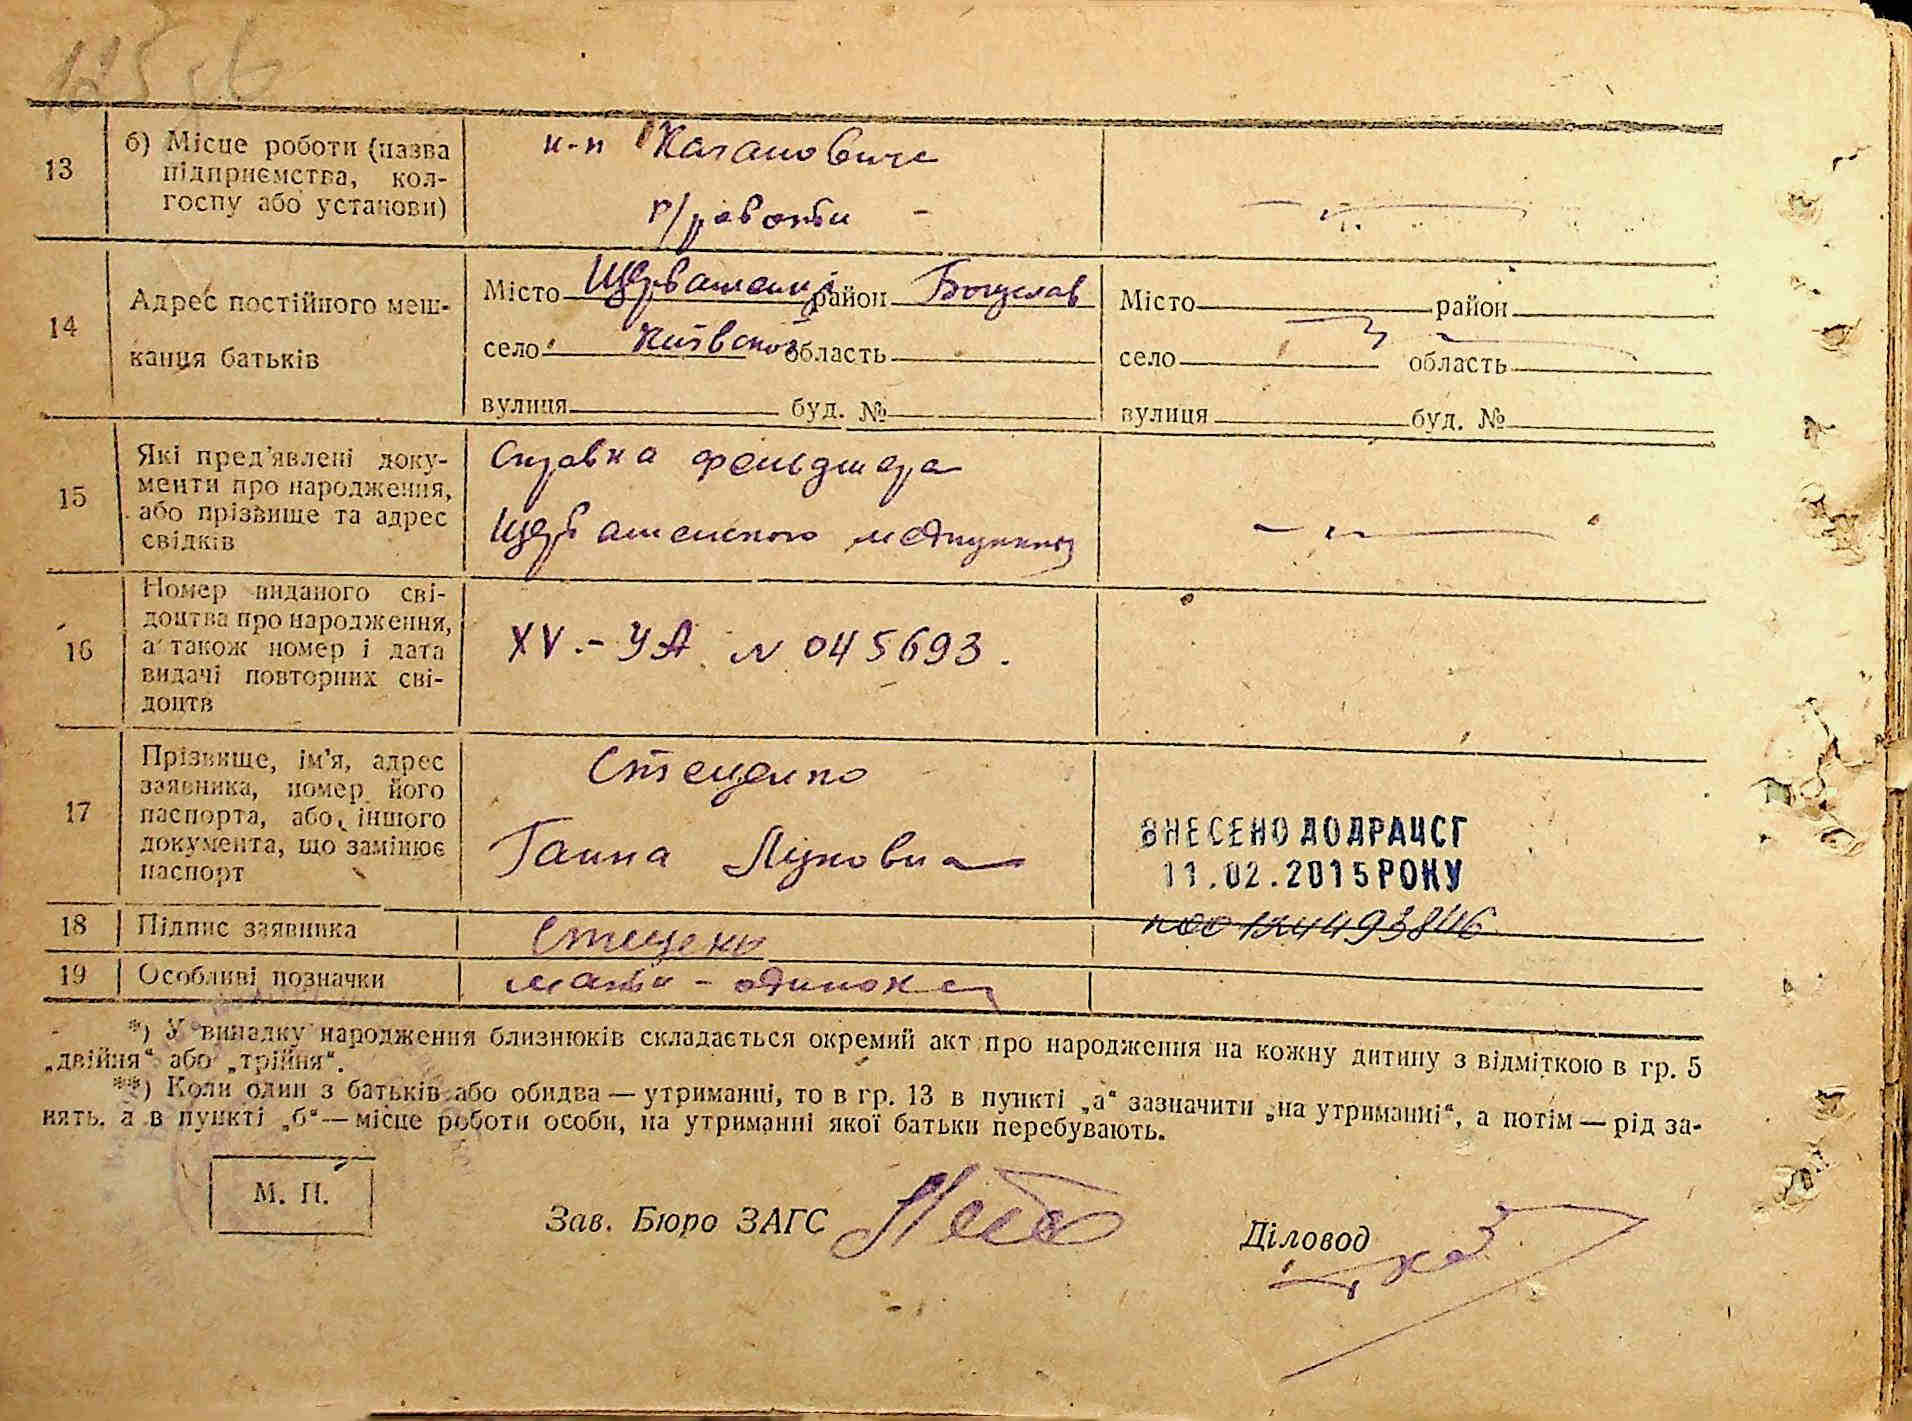 13
б) Місце роботи (назва
підприємства, кол-
госпу або установи)
к-п Кагановича
р/работи -
14
Адрес постійного меш-
канця батьків
Місто Щербашенці район Богуслав
село Київської область
вулиця буд. №
Місто район
село область
вулиця буд. №
15
Які пред'явлені доку-
менти про народження,
або прізвище та адрес
свідків
Справка фельдшера
Щербашенского медпункту
16
Номер виданого сві-
доцтва про народження,
а також номер і дата
видачі повторних сві-
доцтв
XV.-УА N 045693.
17
Прізвище, ім'я, адрес
заявника, номер його
паспорта, або іншого
документа, що замінює
паспорт
Стеценко
Ганна Луковна
ВНЕСЕНО ДО ДРАЦСГ
11.02.2015 РОКУ
18
Підпис заявника
Стеценко
19
Особливі позначки
мати - одиночка
*) У випадку народження близнюків складається окремий акт про народження на кожну дитину з відміткою в гр. 5
„двійня“ або „трійня“.
**) Коли один з батьків або обидва — утриманці, то в гр. 13 в пункті „а“ зазначити „на утриманні“, а потім — рід за-
нять, а в пункті „б“ — місце роботи особи, на утриманні якої батьки перебувають.
М. П.
Зав. Бюро ЗАГС
Діловод